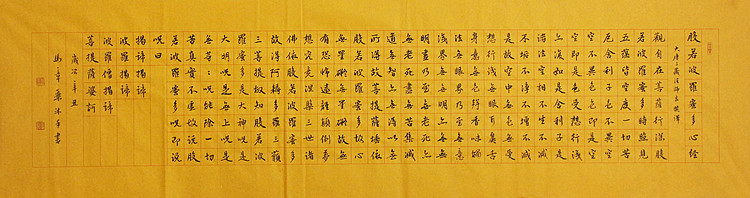 般若波羅蜜多心經
大唐三藏法師玄奘譯
觀自在菩薩行深般
若波羅蜜多時照見
五蘊皆空度一切苦
厄舍利子色不異空
空不異色色即是空
空即是色受想行識
亦復如是舍利子是
諸法空相不生不滅
不垢不淨不增不減
是故空中無色無受
想行識無眼耳鼻舌
身意無色聲香味觸
法無眼界乃至無意
識界無無明亦無無
明盡乃至無老死亦
無老死盡無苦集滅
道無智亦無得以無
所得故菩提薩埵依
般若波羅蜜多故心
無罣礙無罣礙故無
有恐怖遠離顛倒夢
想究竟涅槃三世諸
佛依般若波羅蜜多
故得阿耨多羅三藐
三菩提故知般若波
羅蜜多是大神呪是
大明呪是無上呪是
無等：呪能除一切
苦真實不虛故說般
若波羅蜜多呪即說
呪曰
揭諦揭諦
波羅揭諦
波羅僧揭諦
菩提薩婆訶
歲次辛丑
書